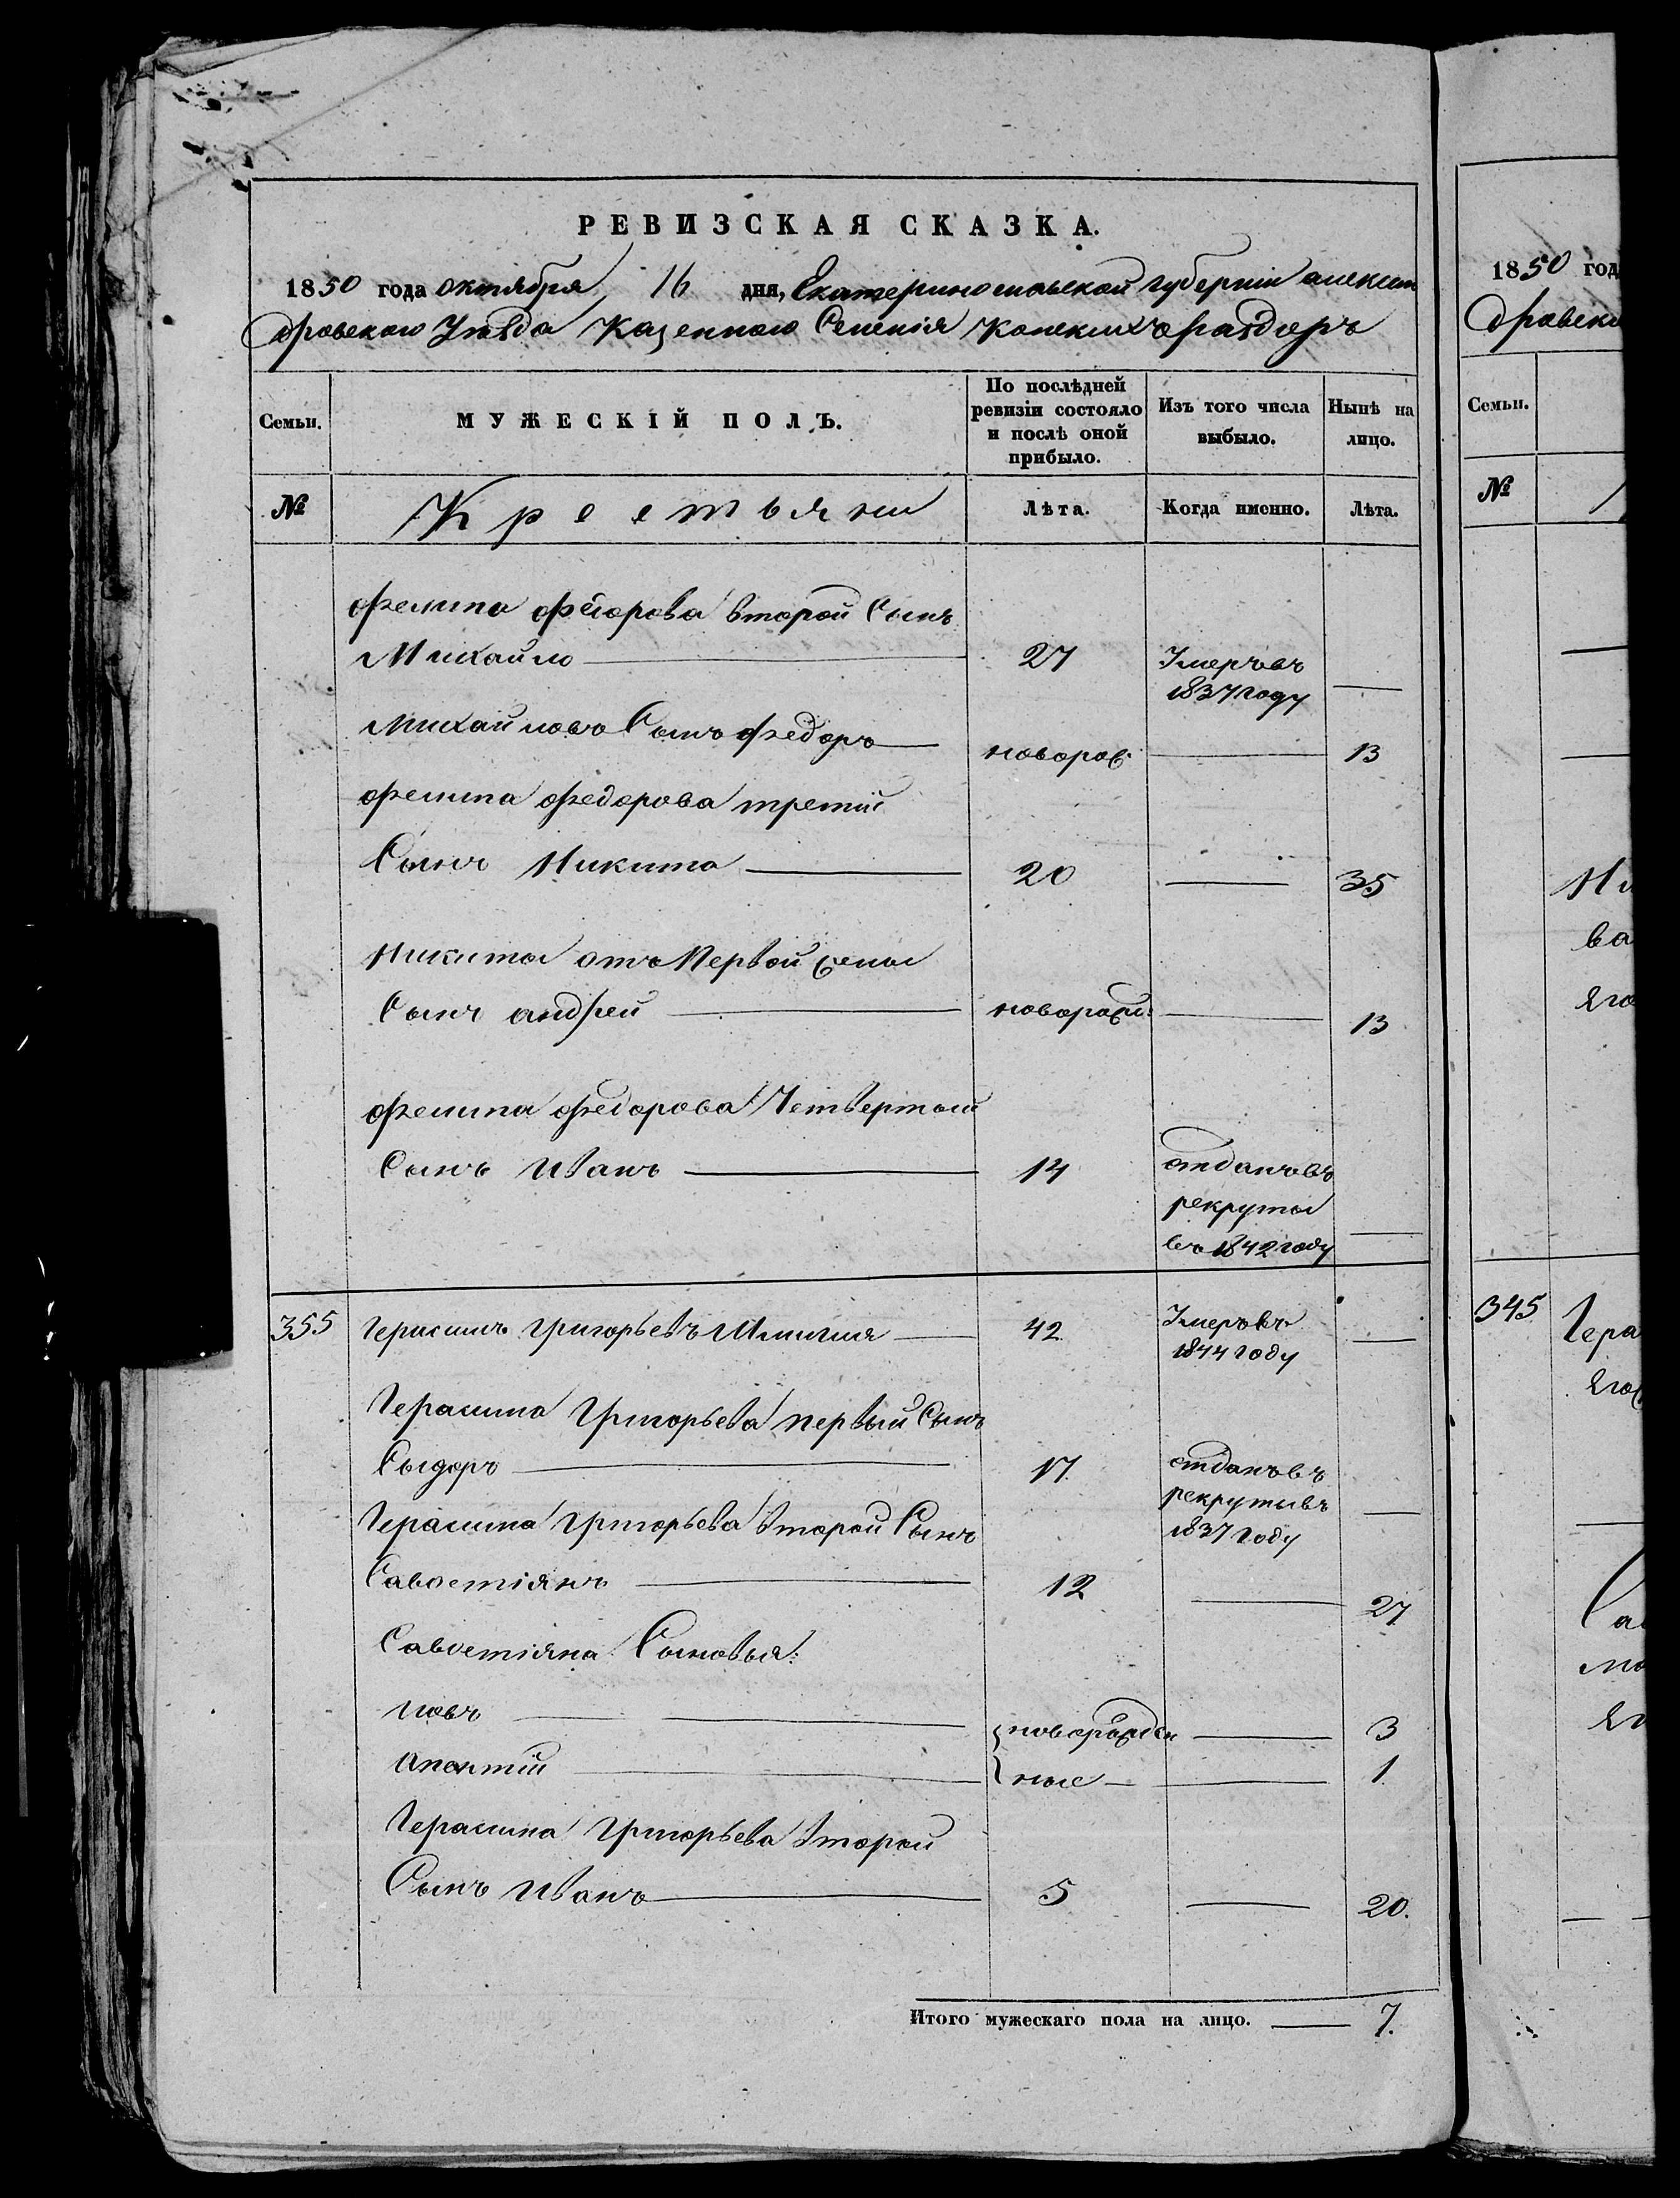 РЕВИЗСКАЯ СКАЗКА.
1850 года октября 16 дня, Екатеринославской губерніи алексан
дровского Уѣзда Казенного Селенія Конскихъ раздоръ
Семьи.
МУЖЕСКІЙ ПОЛЪ.
По послѣдней ревизіи состояло и послѣ оной прибыло.
Изъ того числа выбыло.
Нынѣ на лицо.
№
Крестьяни
Лѣта.
Когда именно.
Лѣта.
Филипа Фёдорова второй Сынъ
Михайло 27 Умеръ въ
1837 году —
Михайловъ Сынъ Федоръ новорож: — 13
Филипа Федорова третій
Сынъ Никита 20 — 35
Никиты отъ Первой жены
Сынъ андрей новорожд: — 13
Филипа Федорова Четвертый
Сынъ Иванъ 14 отданъ въ
рекруты
въ 1842 году —
355 Герасимъ Григорьевъ 42 Умеръ въ
1844 году —
Герасима Григорьева первый Сынъ
Сыдоръ 17. отданъ въ
рекруты въ
1837 году —
Герасима Григорьева Второй Сынъ
Савостіянъ 12 — 27
Савостіяна Сыновья:
Иовъ новорожден — 3
ные — 1.
Герасима Григорьева Второй
Сынъ Иванъ 5 — 20.
Итого мужескаго пола на лицо. — 7.
1850 год
дровско
Семьи.
№
Ни
ва
его
345 Гера
его
Са